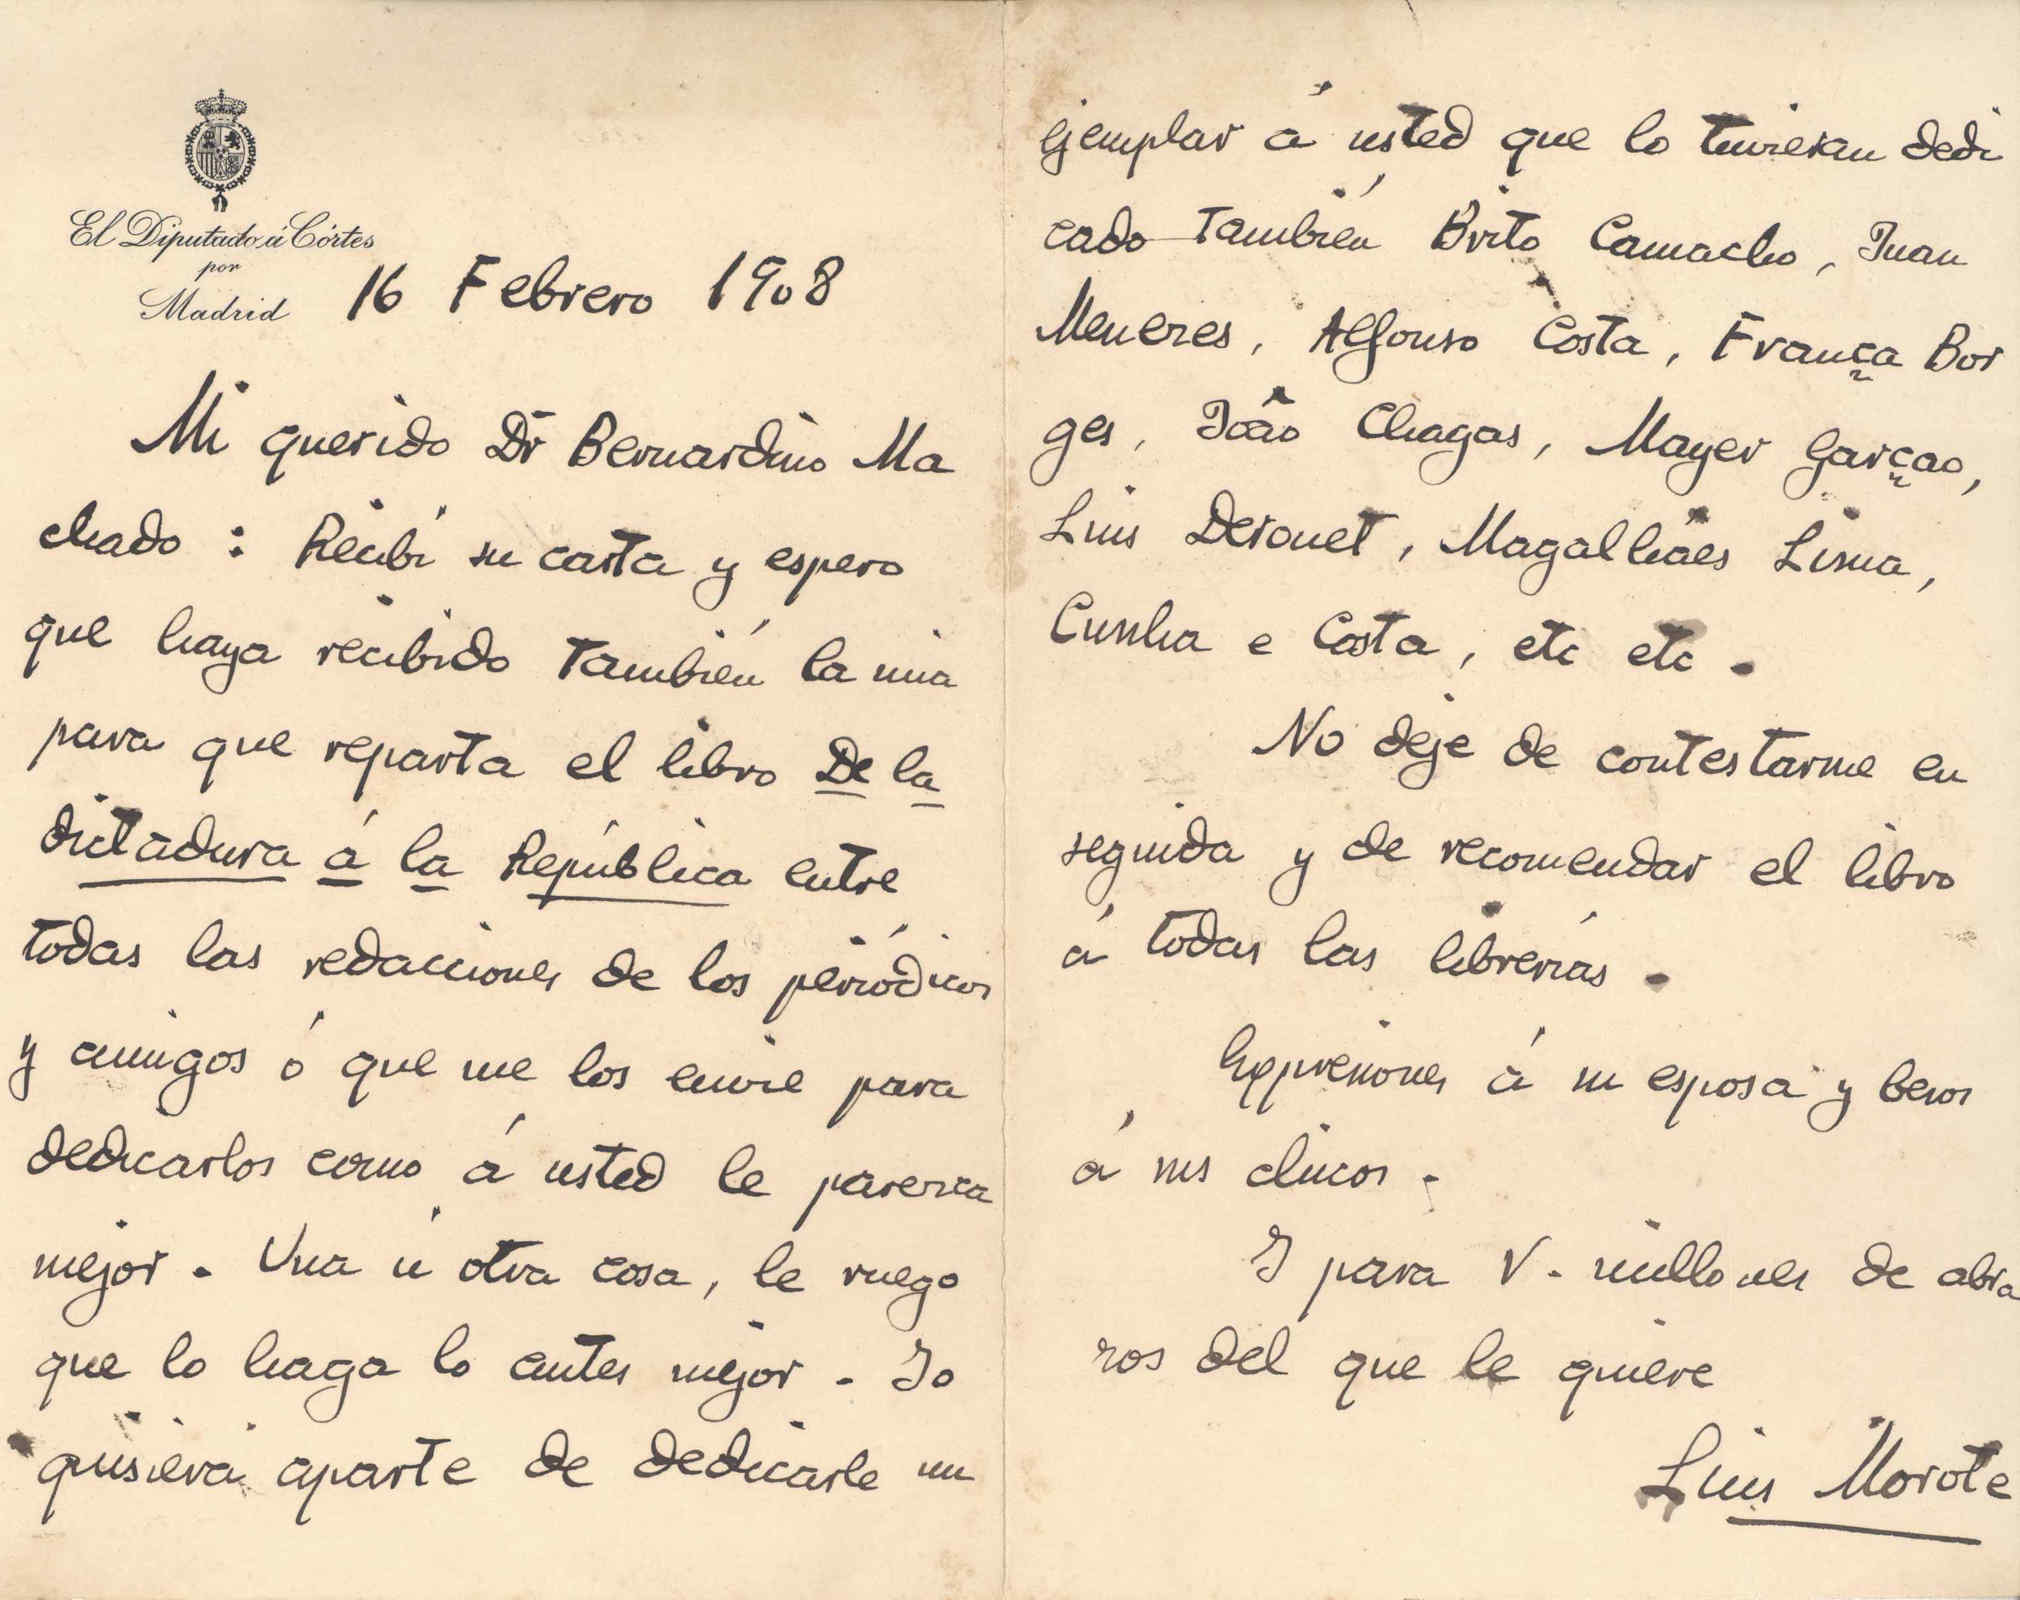 El Diputado á Córtes
por
Madrid
16 Febrero 1908
Mi querido Dr Bernardino Ma
chado : Recibí su carta y espero
que haya recibido también la mia
para que reparta el libro De la
dictadura á la República entre
todas las redacciones de los periódicos
y amigos ó que me los envie para
dedicarlos como á usted le parezca
mejor. Una ú otra cosa, le ruego
que lo haga lo antes mejor. Yo
quisiera aparte de dedicarle un
ejemplar á usted que lo tuvieran dedi
cado también Brito Camacho, Juan
Meneres, Alfonso Costa, França Bor
ges, João Chagas, Mayer Garçao,
Luis Derouet, Magalháes Lima,
Cunha e Costa, etc etc.
No deje de contestarme en
seguida y de recomendar el libro
á todas las librerías.
Expresiones á su esposa y besos
á sus chicos.
Y para V. millones de abra
zos del que le quiere
Luis Morote